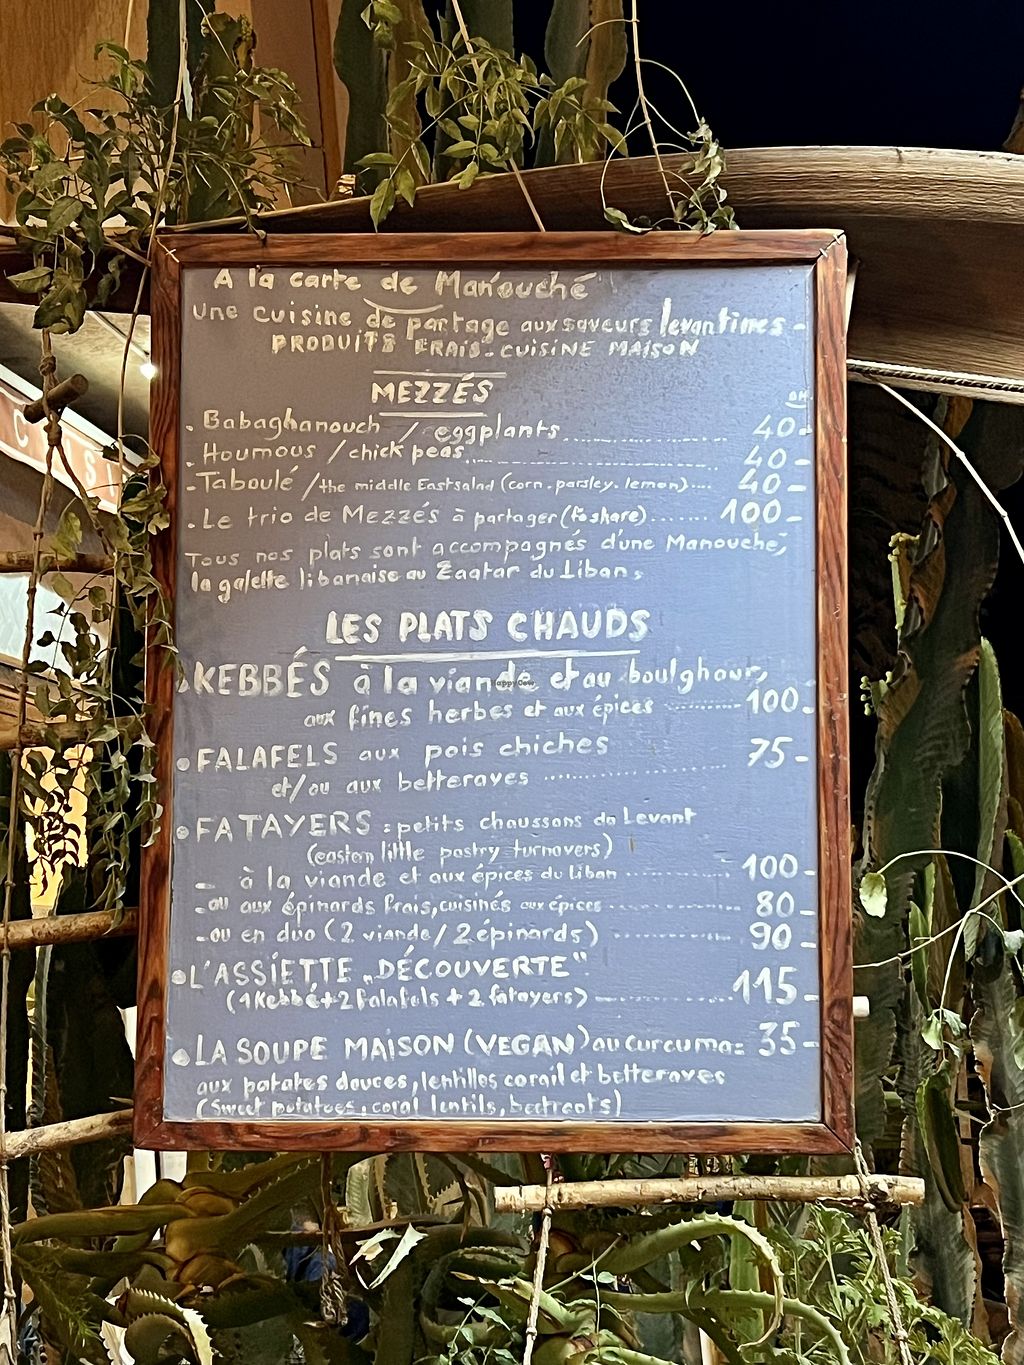 A la carte de Man'ouché
une cuisine de partage aux saveurs levantines -
PRODUITS FRAIS - CUISINE MAISON
MEZZÉS
DH
. Babaghanouch / eggplants .......... 40 -
. Houmous / chick peas .......... 40 -
- Taboulé / the middle Eastsalad (corn . parsley . lemon) .... 40 -
. Le trio de MEZZÉS à partager (to share) ....... 100 -
Tous nos plats sont accompagnés d'une Manouché,
la galette libanaise au Zaatar du Liban.
LES PLATS CHAUDS
KEBBÉS à la viande et au boulghour,
aux fines herbes et aux épices .......... 100 -
• FALAFELS aux pois chiches 75 -
et/ou aux betteraves ..........
• FATAYERS : petits chaussons du Levant
(eastern little pastry turnovers)
- à la viande et aux épices du Liban .......... 100 -
- ou aux épinards frais, cuisinés aux épices .......... 80 -
- ou en duo (2 viande / 2 épinards) .......... 90 -
• L'ASSIETTE "DÉCOUVERTE"
(1 Kebbé + 2 Falafels + 2 fatayers) .......... 115 -
• LA SOUPE MAISON (VEGAN) au curcuma = 35 -
aux patates douces, lentilles corail et betteraves
(Sweet potatoes, coral lentils, beetroots)
HappyCow